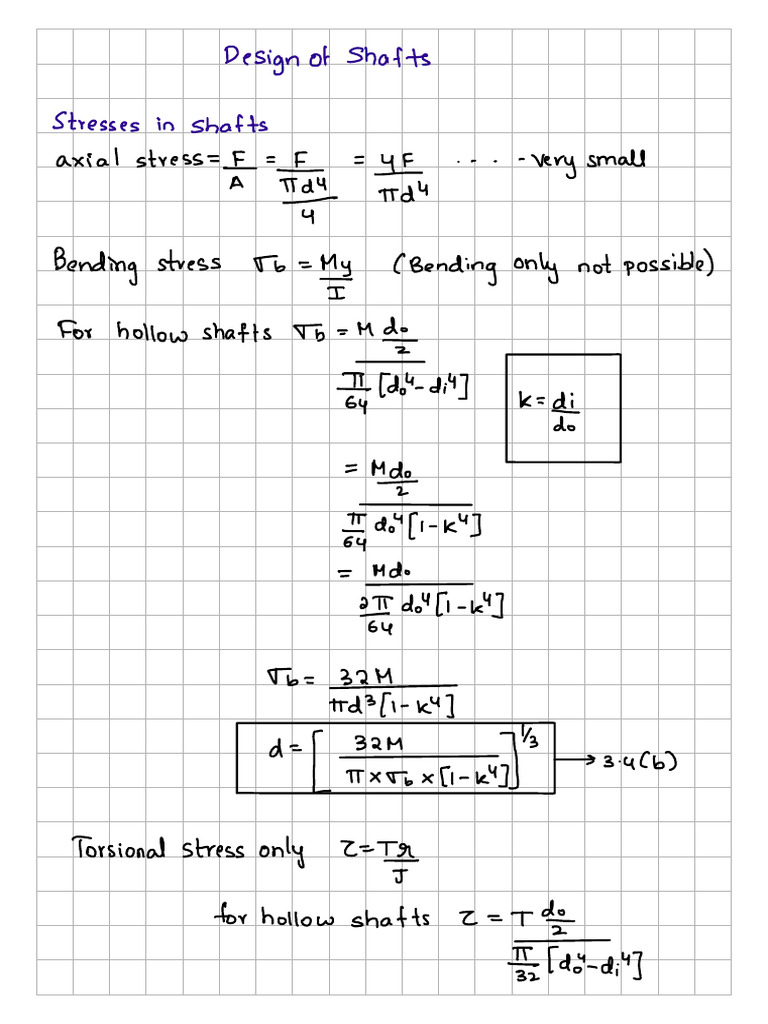 Design of Shafts
Stresses in shafts
axial stress = F/A = F/(πd⁴/4) = 4F/πd⁴ .... very small
Bending stress σb = My/I (Bending only not possible)
For hollow shafts σb = M do/2 / π/64 [do⁴-di⁴]
k = di/do
= Mdo/2 / π/64 do⁴[1-k⁴]
= Mdo / 2π/64 do⁴[1-k⁴]
σb = 32M / πd³[1-k⁴]
d = [32M / π×σb×[1-k⁴]]^1/3 → 3.4(b)
Torsional stress only τ = Tr/J
for hollow shafts τ = T do/2 / π/32 [do⁴-di⁴]